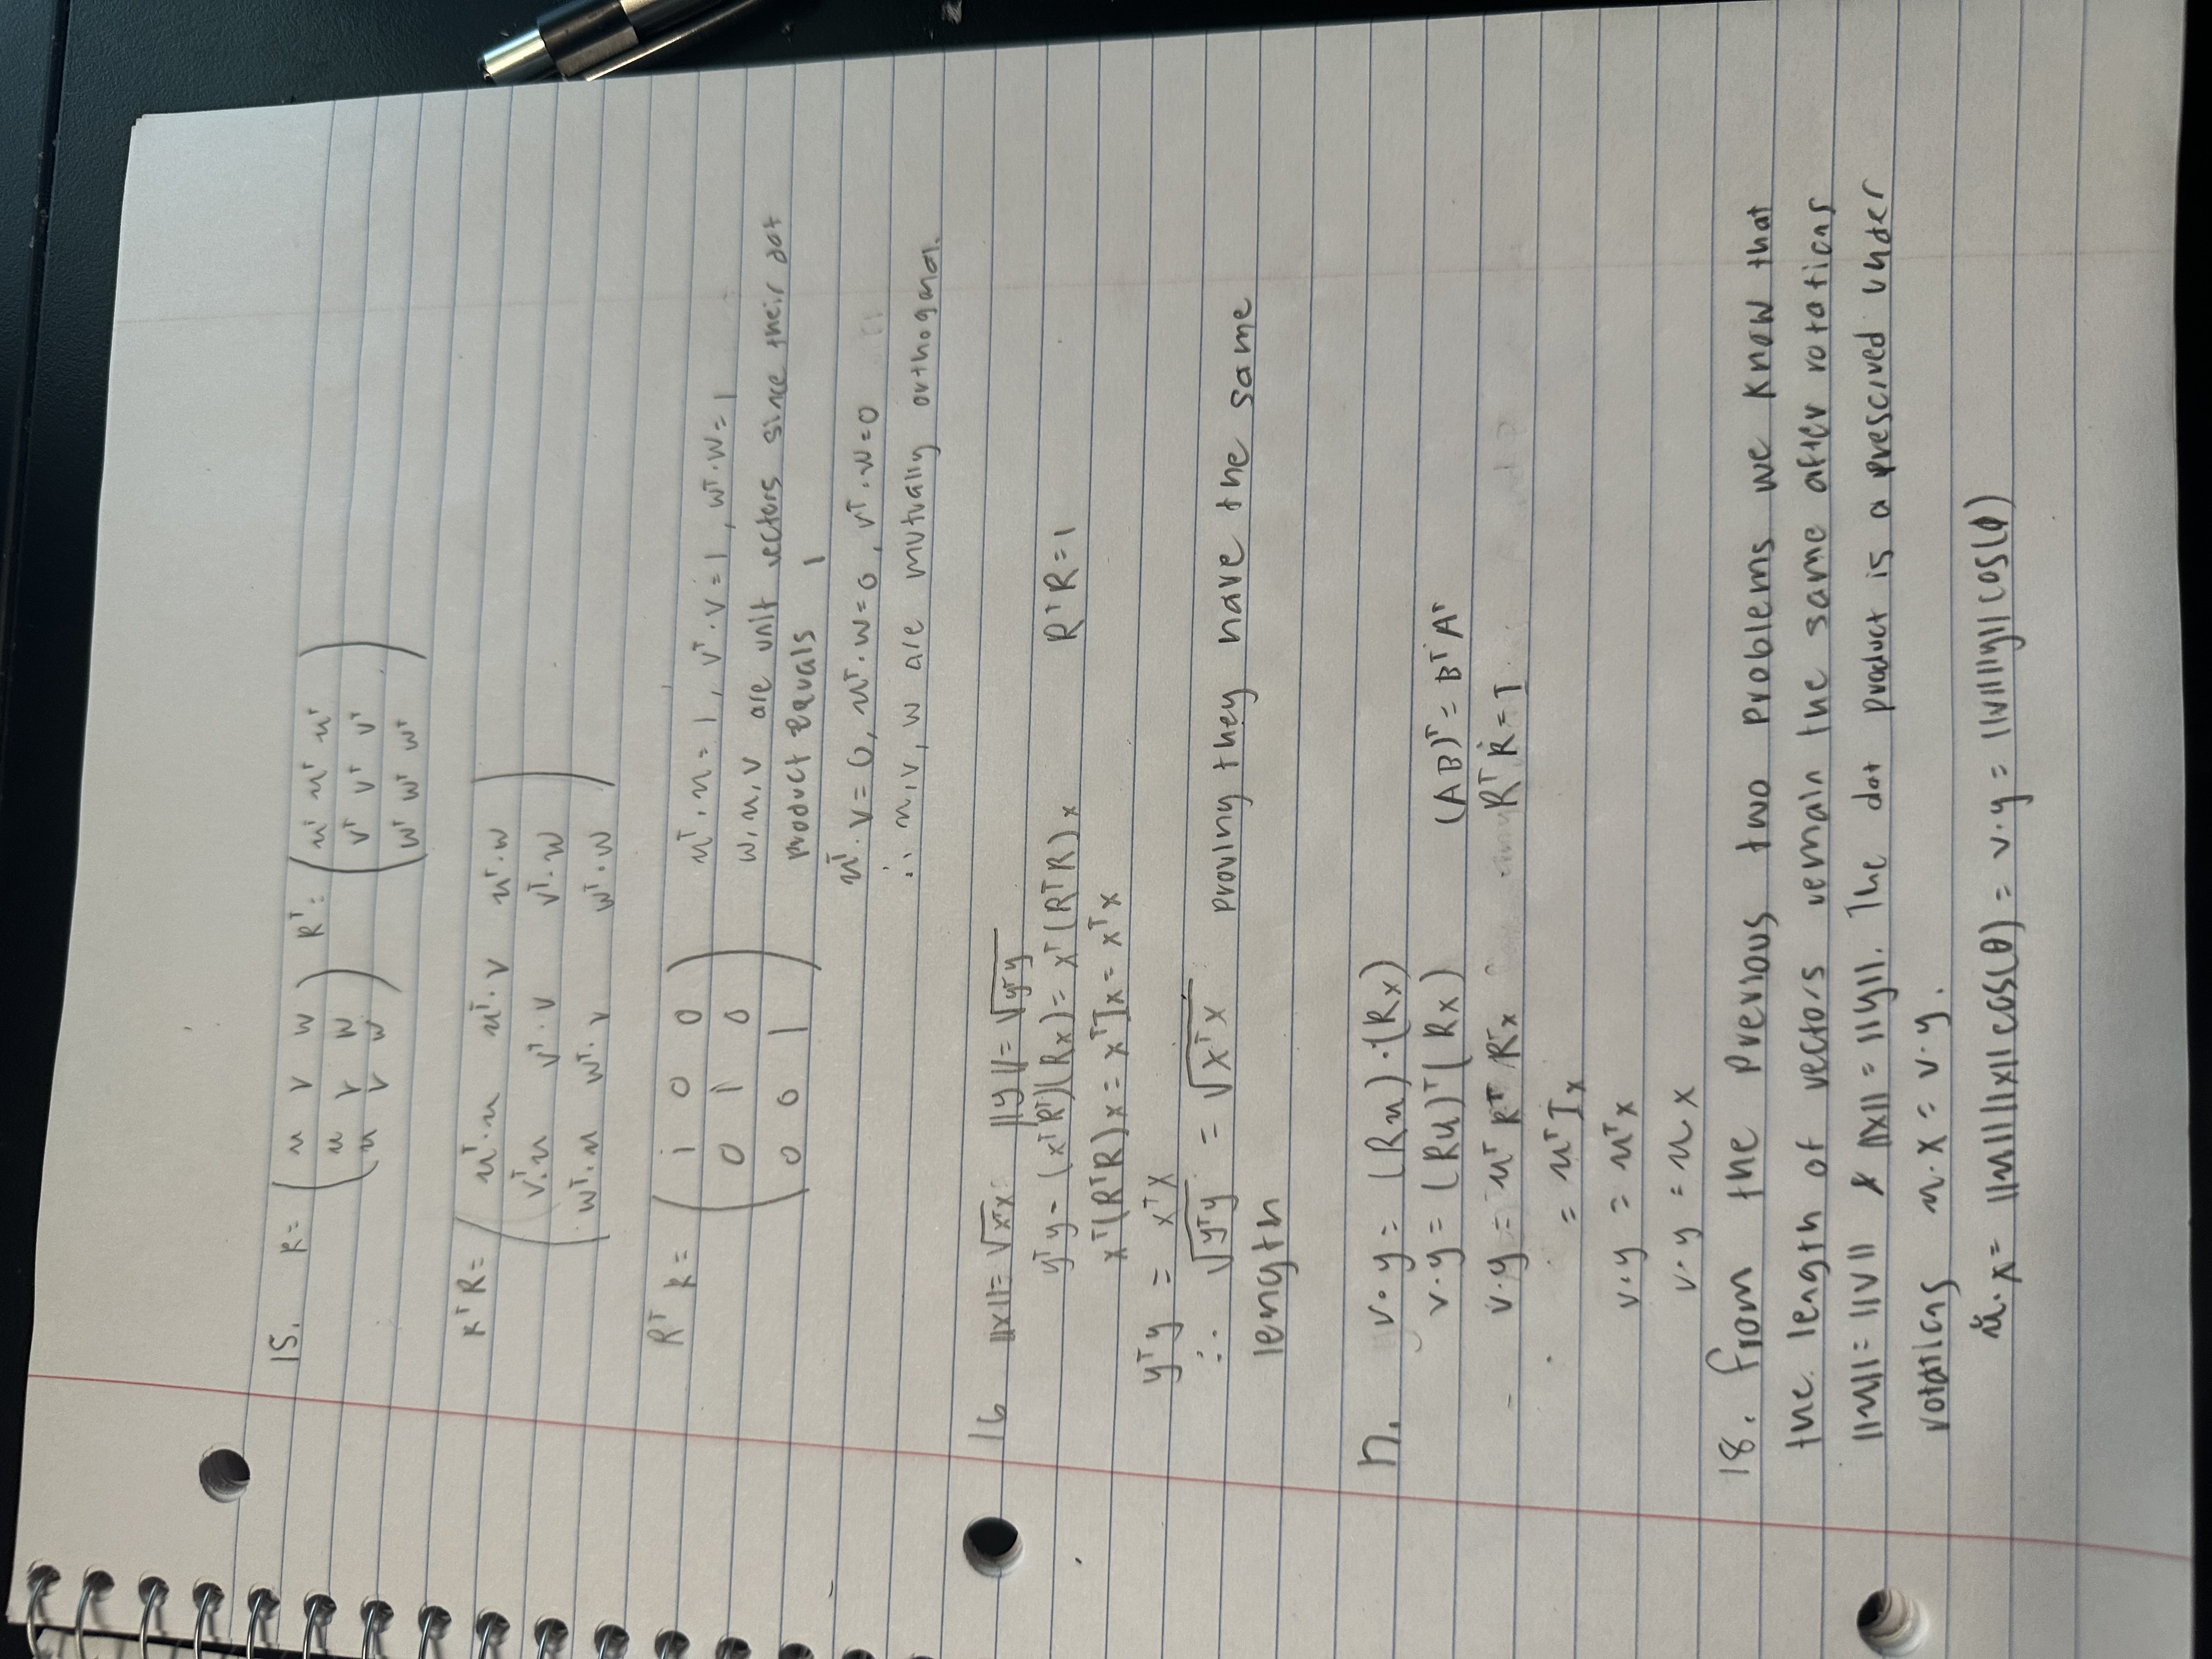 15. R = ( u v w ) R^T : ( u^T u^T u^T )
u v w v^T v^T v^T
u v w w^T w^T w^T
R^T R = ( u^T·u u^T·v u^T·w )
v^T·u v^T·v v^T·w
w^T·u w^T·v w^T·w
R^T R = ( 1 0 0 ) u^T·u = 1, v^T·v = 1, w^T·w = 1
0 1 0 w, u, v are unit vectors since their dot
0 0 1 product equals 1
u^T·v = 0, u^T·w = 0, v^T·w = 0
∴ u, v, w are mutually orthogonal.
16 ||x|| = √x^Tx ||y|| = √y^Ty
y^Ty = (x^TR^T)(Rx) = x^T(R^TR)x R^TR = 1
x^T(R^TR)x = x^TIx = x^Tx
y^Ty = x^Tx
∴ √y^Ty = √x^Tx proving they have the same
length
17. v·y = (Ru)·(Rx)
v·y = (Ru)^T(Rx) (AB)^T = B^T A^T
v·y = u^T R^T Rx R^T R = I
= u^T I x
v·y = u^T x
v·y = u·x
18. From the previous two problems we know that
the length of vectors remain the same after rotations
||u|| = ||v|| & ||x|| = ||y||. The dot product is a prescived under
rotations u·x = v·y.
u·x = ||u|| ||x|| cos(θ) = v·y = ||v|| ||y|| cos(ϕ)